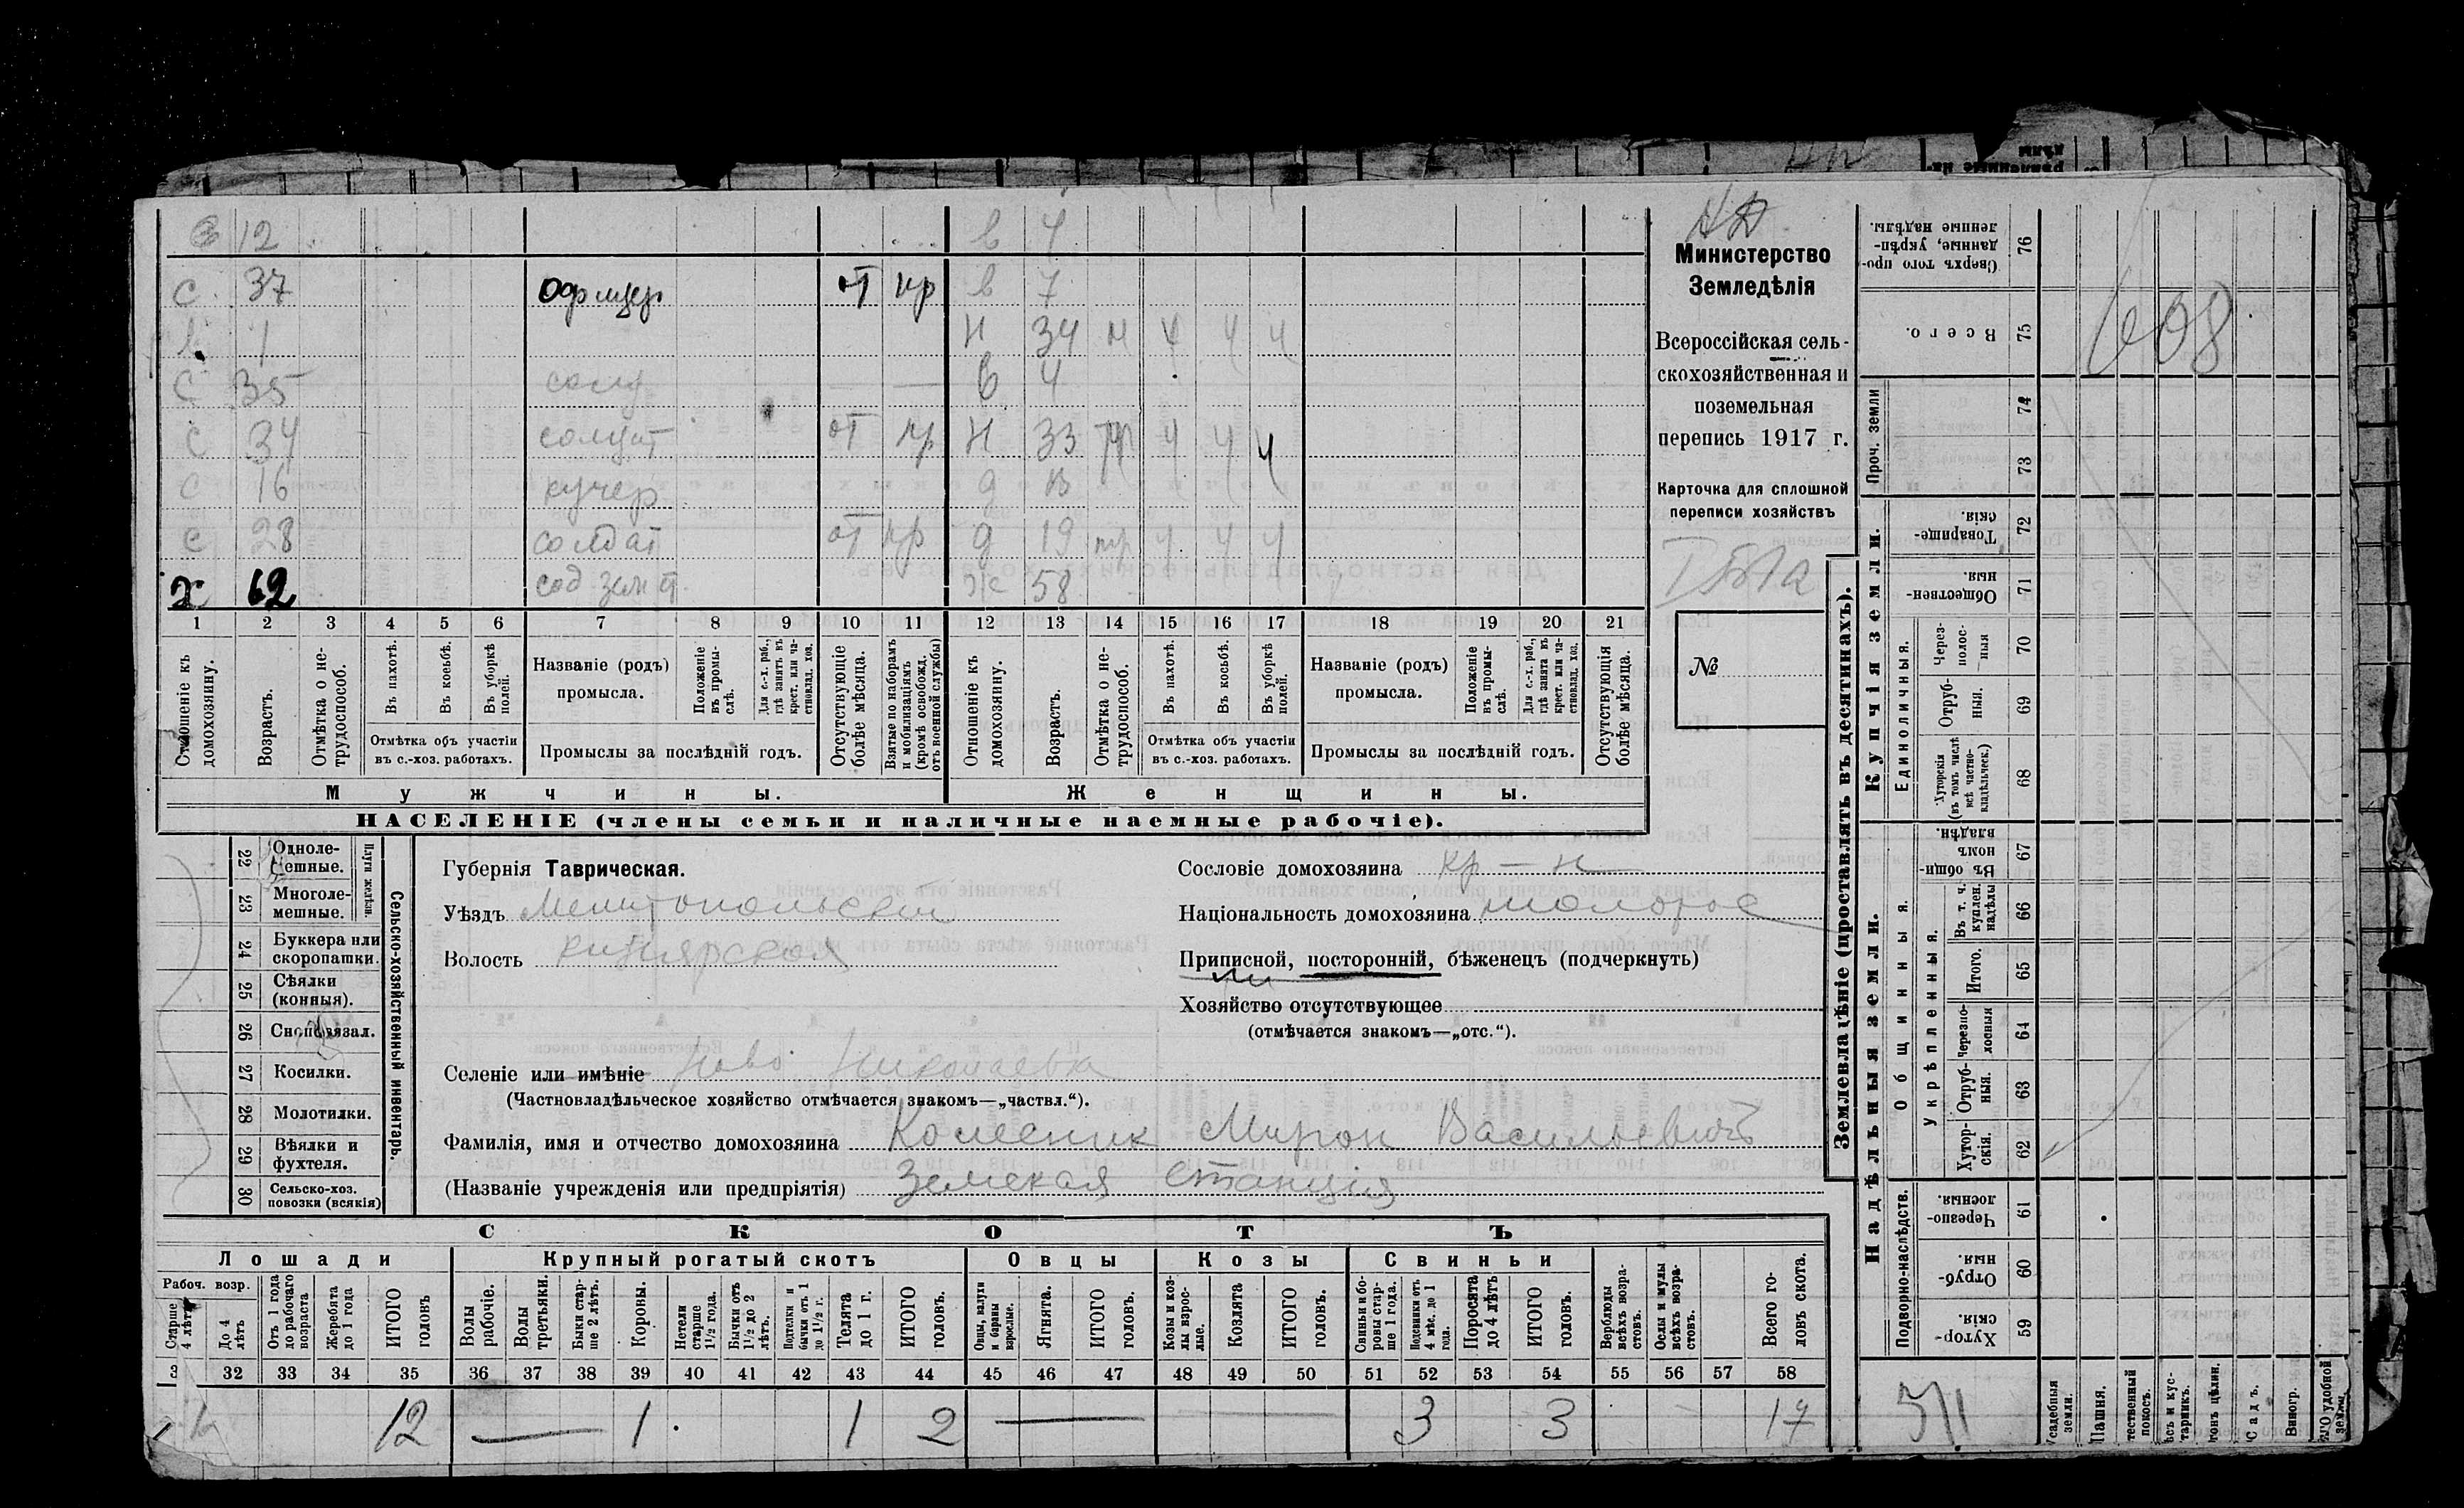 З 12 в 4
с 37 офицер от пр в 7
в 1 н 34 ч ч ч
с 35 солд — — в 4
с 34 солдат от пр н 33 ч ч ч
с 16 кучер д 13
с 28 солдат от пр д 19 ч ч ч
х 62 сод зем ст ж 58
1 2 3 4 5 6 7 8 9 10 11 12 13 14 15 16 17 18 19 20 21
Отношеніе къ домохозяину.
Возрастъ.
Отмѣтка о не-трудоспособ.
Въ пахотѣ.
Въ косьбѣ.
Въ уборкѣ полей.
Отмѣтка объ участіи въ с.-хоз. работахъ.
Названіе (родъ) промысла.
Положеніе въ промы-слѣ.
Для с.-х. раб., гдѣ занятъ въ крест. или ча-стновлад. хоз.
Промыслы за послѣдній годъ.
Отсутствующіе болѣе мѣсяца.
Взятые по наборамъ и мобилизаціямъ (кромѣ освобожд. отъ военной службы)
Отношеніе къ домохозяину.
Возрастъ.
Отмѣтка о не-трудоспособ.
Въ пахотѣ.
Въ косьбѣ.
Въ уборкѣ полей.
Отмѣтка объ участіи въ с.-хоз. работахъ.
Названіе (родъ) промысла.
Положеніе въ промы-слѣ.
Для с.-х. раб., гдѣ занята въ крест. или ча-стновлад. хоз.
Промыслы за послѣдній годъ.
Отсутствующія болѣе мѣсяца.
Мужчины.
Женщины.
НАСЕЛЕНІЕ (члены семьи и наличные наемные рабочіе).
Министерство
Земледѣлія
Всероссійская сель-
скохозяйственная и
поземельная
перепись 1917 г.
Карточка для сплошной
переписи хозяйствъ
№
22 Одноле-мешные.
23 Многоле-мешные.
Плуги желѣзн.
24 Буккера или скоропашки.
25 Сѣялки (конныя).
26 Сноповязал.
27 Косилки.
28 Молотилки.
29 Вѣялки и фухтеля.
30 Сельско-хоз. повозки (всякія)
Сельско-хозяйственный инвентарь.
Губернія Таврическая.
Уѣздъ Мелитопольский
Волость Кизиярская
Сословіе домохозяина кр-н
Національность домохозяина малорос
Приписной, посторонній, бѣженецъ (подчеркнуть)
Хозяйство отсутствующее
(отмѣчается знакомъ—„отс.“).
Селеніе или имѣніе Ново Николаевка
(Частновладѣльческое хозяйство отмѣчается знакомъ—„частвл.“).
Фамилія, имя и отчество домохозяина Колесник Мирон Васильевичъ
(Названіе учрежденія или предпріятія) Земская станция
СКОТЪ
Лошади Крупный рогатый скотъ Овцы Козы Свиньи
Рабоч. возр.
Старше 4 лѣтъ
До 4 лѣтъ
Отъ 1 года до рабочаго возраста
Жеребята до 1 года
ИТОГО головъ
Волы рабочіе.
Волы третьяки.
Быки стар-ше 2 лѣтъ.
Коровы.
Нетели старше 1½ года.
Бычки отъ 1½ до 2 лѣтъ.
Подтелки и бычки отъ 1 до 1½ г.
Телята до 1 г.
ИТОГО головъ.
Овцы, валухи и бараны взрослые.
Ягнята.
ИТОГО головъ.
Козы и коз-лы взрос-лые.
Козлята
ИТОГО головъ.
Свиньи и бо-ровы стар-ше 1 года.
Подсвинки отъ 4 мѣс. до 1 года.
Поросята до 4 лѣтъ
ИТОГО головъ.
Верблюды всѣхъ возра-стовъ.
Ослы и мулы всѣхъ возра-стовъ.
Всего го-ловъ скота.
32 33 34 35 36 37 38 39 40 41 42 43 44 45 46 47 48 49 50 51 52 53 54 55 56 57 58
12 — 1 1 2 — — 3 3 17
Землевладѣніе (проставлять въ десятинахъ).
Надѣльныя земли. Купчія земли.
Проч. земли
Подворно-наслѣдств.
Общинныя.
Укрѣпленныя.
Единоличныя.
Сверхъ того про-данные, укрѣп-ленные надѣлы. 76
Всего. 75
74
73
Товарище-скія. 72
Обществен-ныя. 71
Через-полос-ныя 70
Отруб-ныя. 69
Хуторскія (въ томъ числѣ всѣ частно-владѣльческ.) 68
Въ общи-номъ владѣн. 67
Въ т. ч. куплен. надѣлы 66
Итого. 65
Черезпо-лосныя 64
Отруб-ныя. 63
Хутор-скія. 62
Черезпо-лосныя. 61
Отруб-ныя. 60
Хутор-скія. 59
608
511
Усадебныя земли.
Пашня.
Садъ.
Виногр.